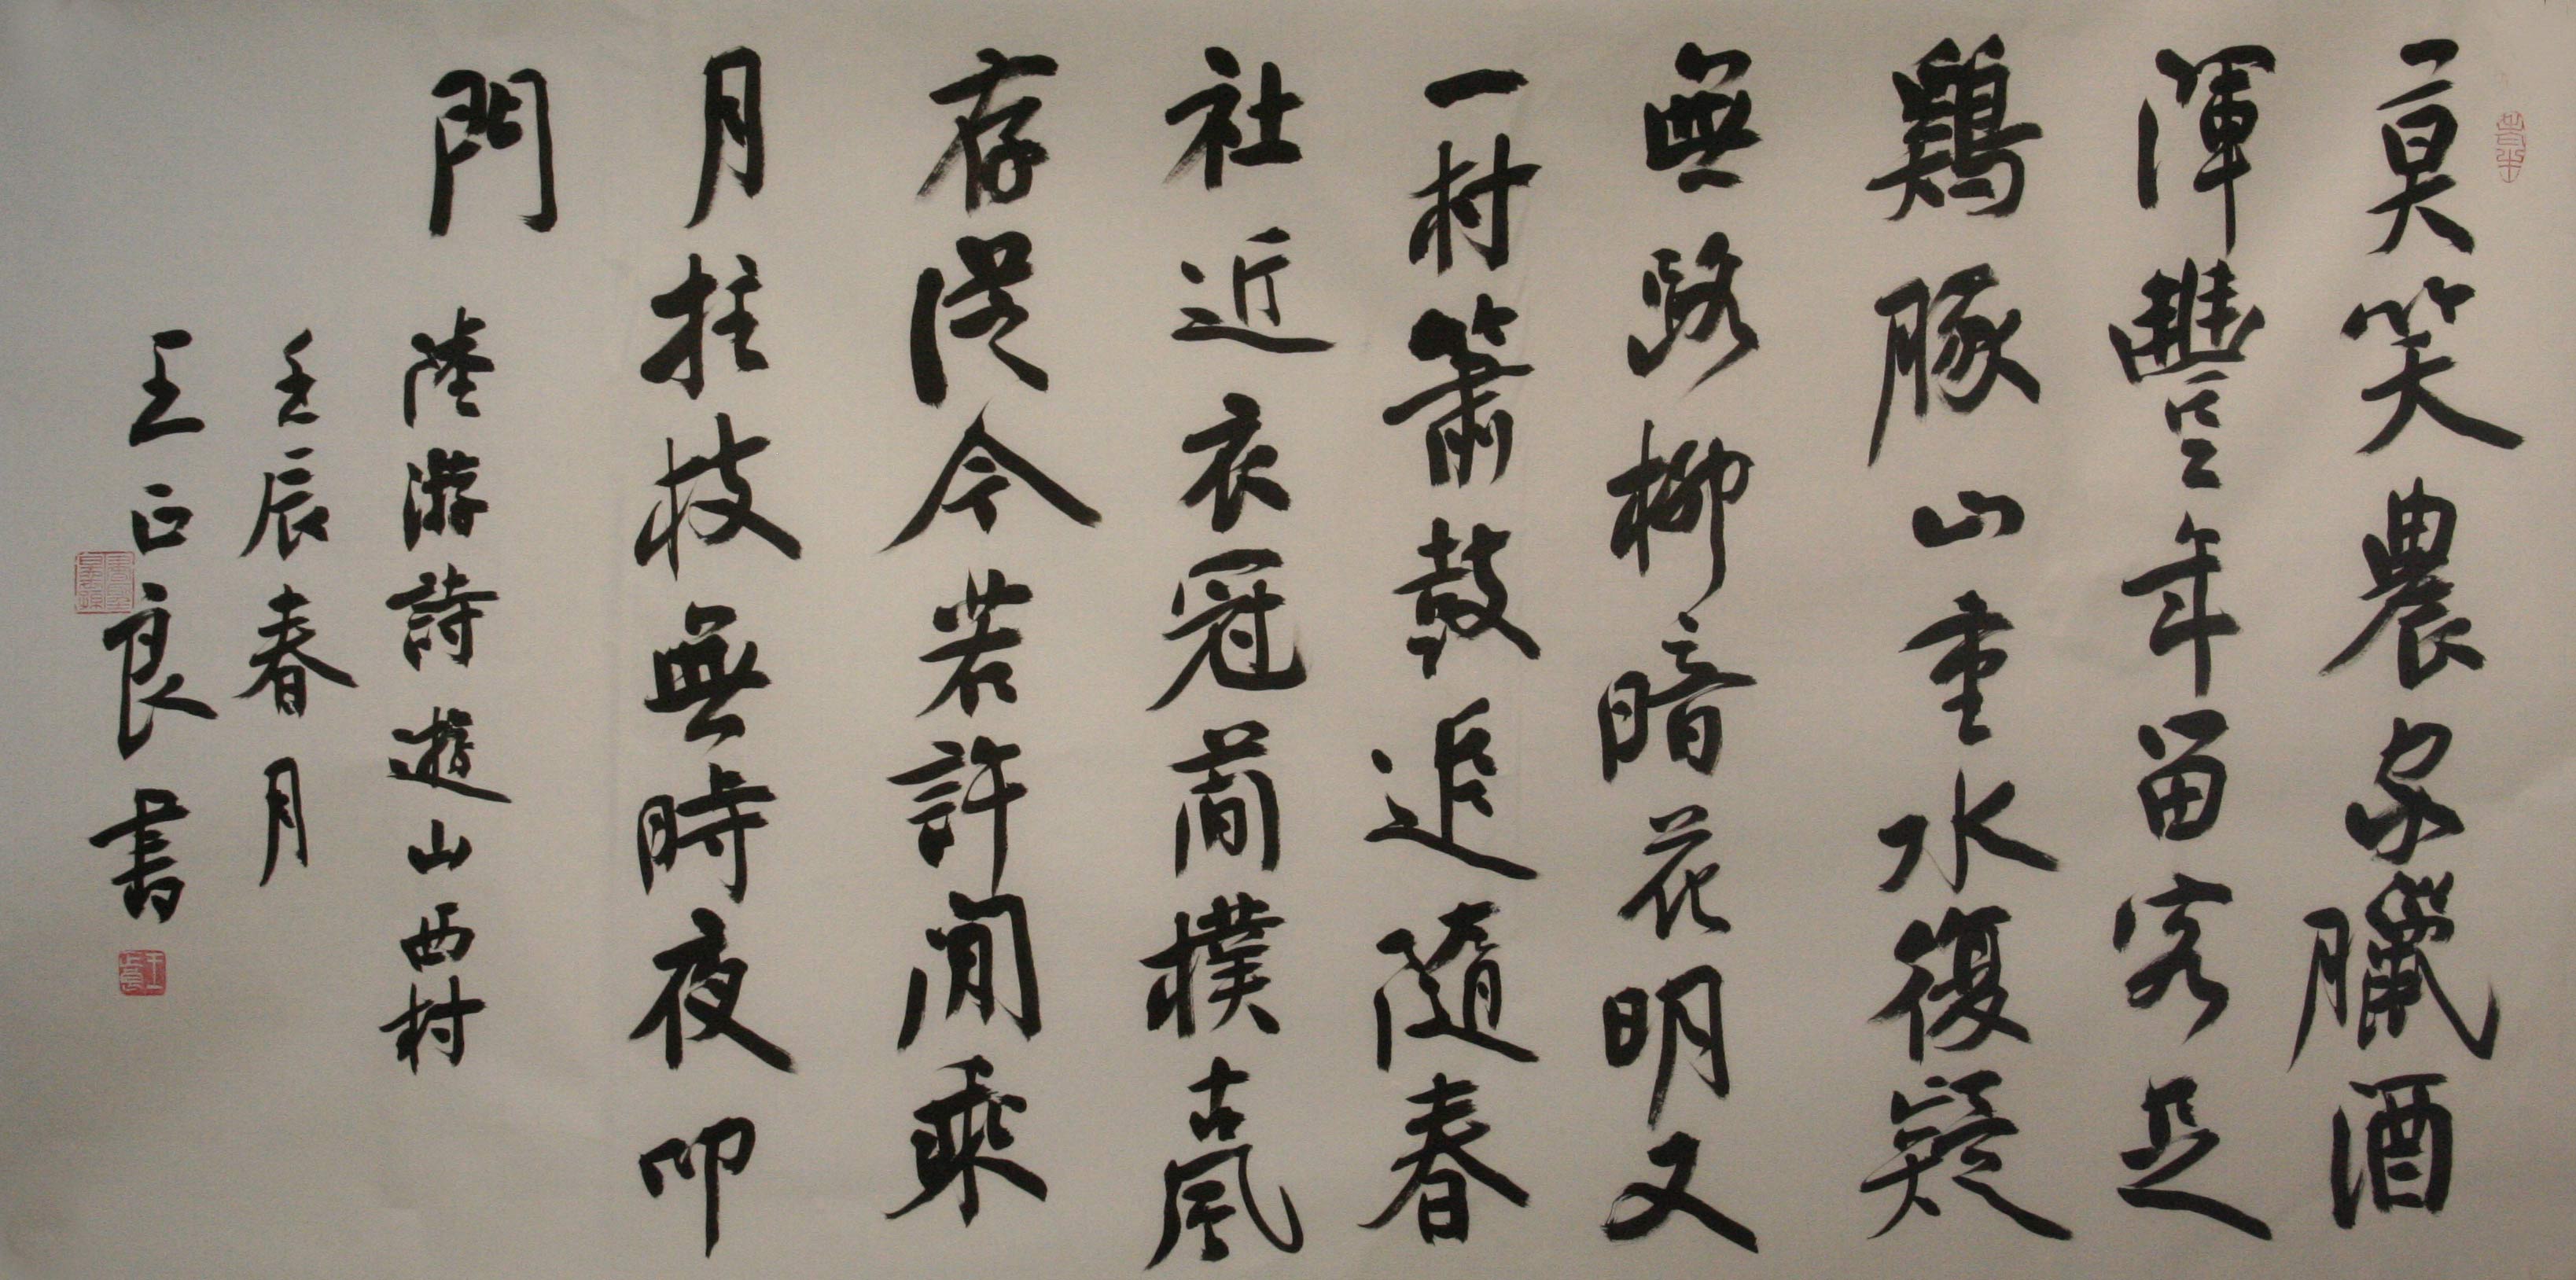 莫笑農家臘酒
渾豐年留客足
鷄豚山重水復疑
無路柳暗花明又
一村簫鼓追隨春
社近衣冠蕳樸古風
存從今若許閒乘
月拄杖無時夜叩
門
陸游詩遊山西村
壬辰春月
王正良書